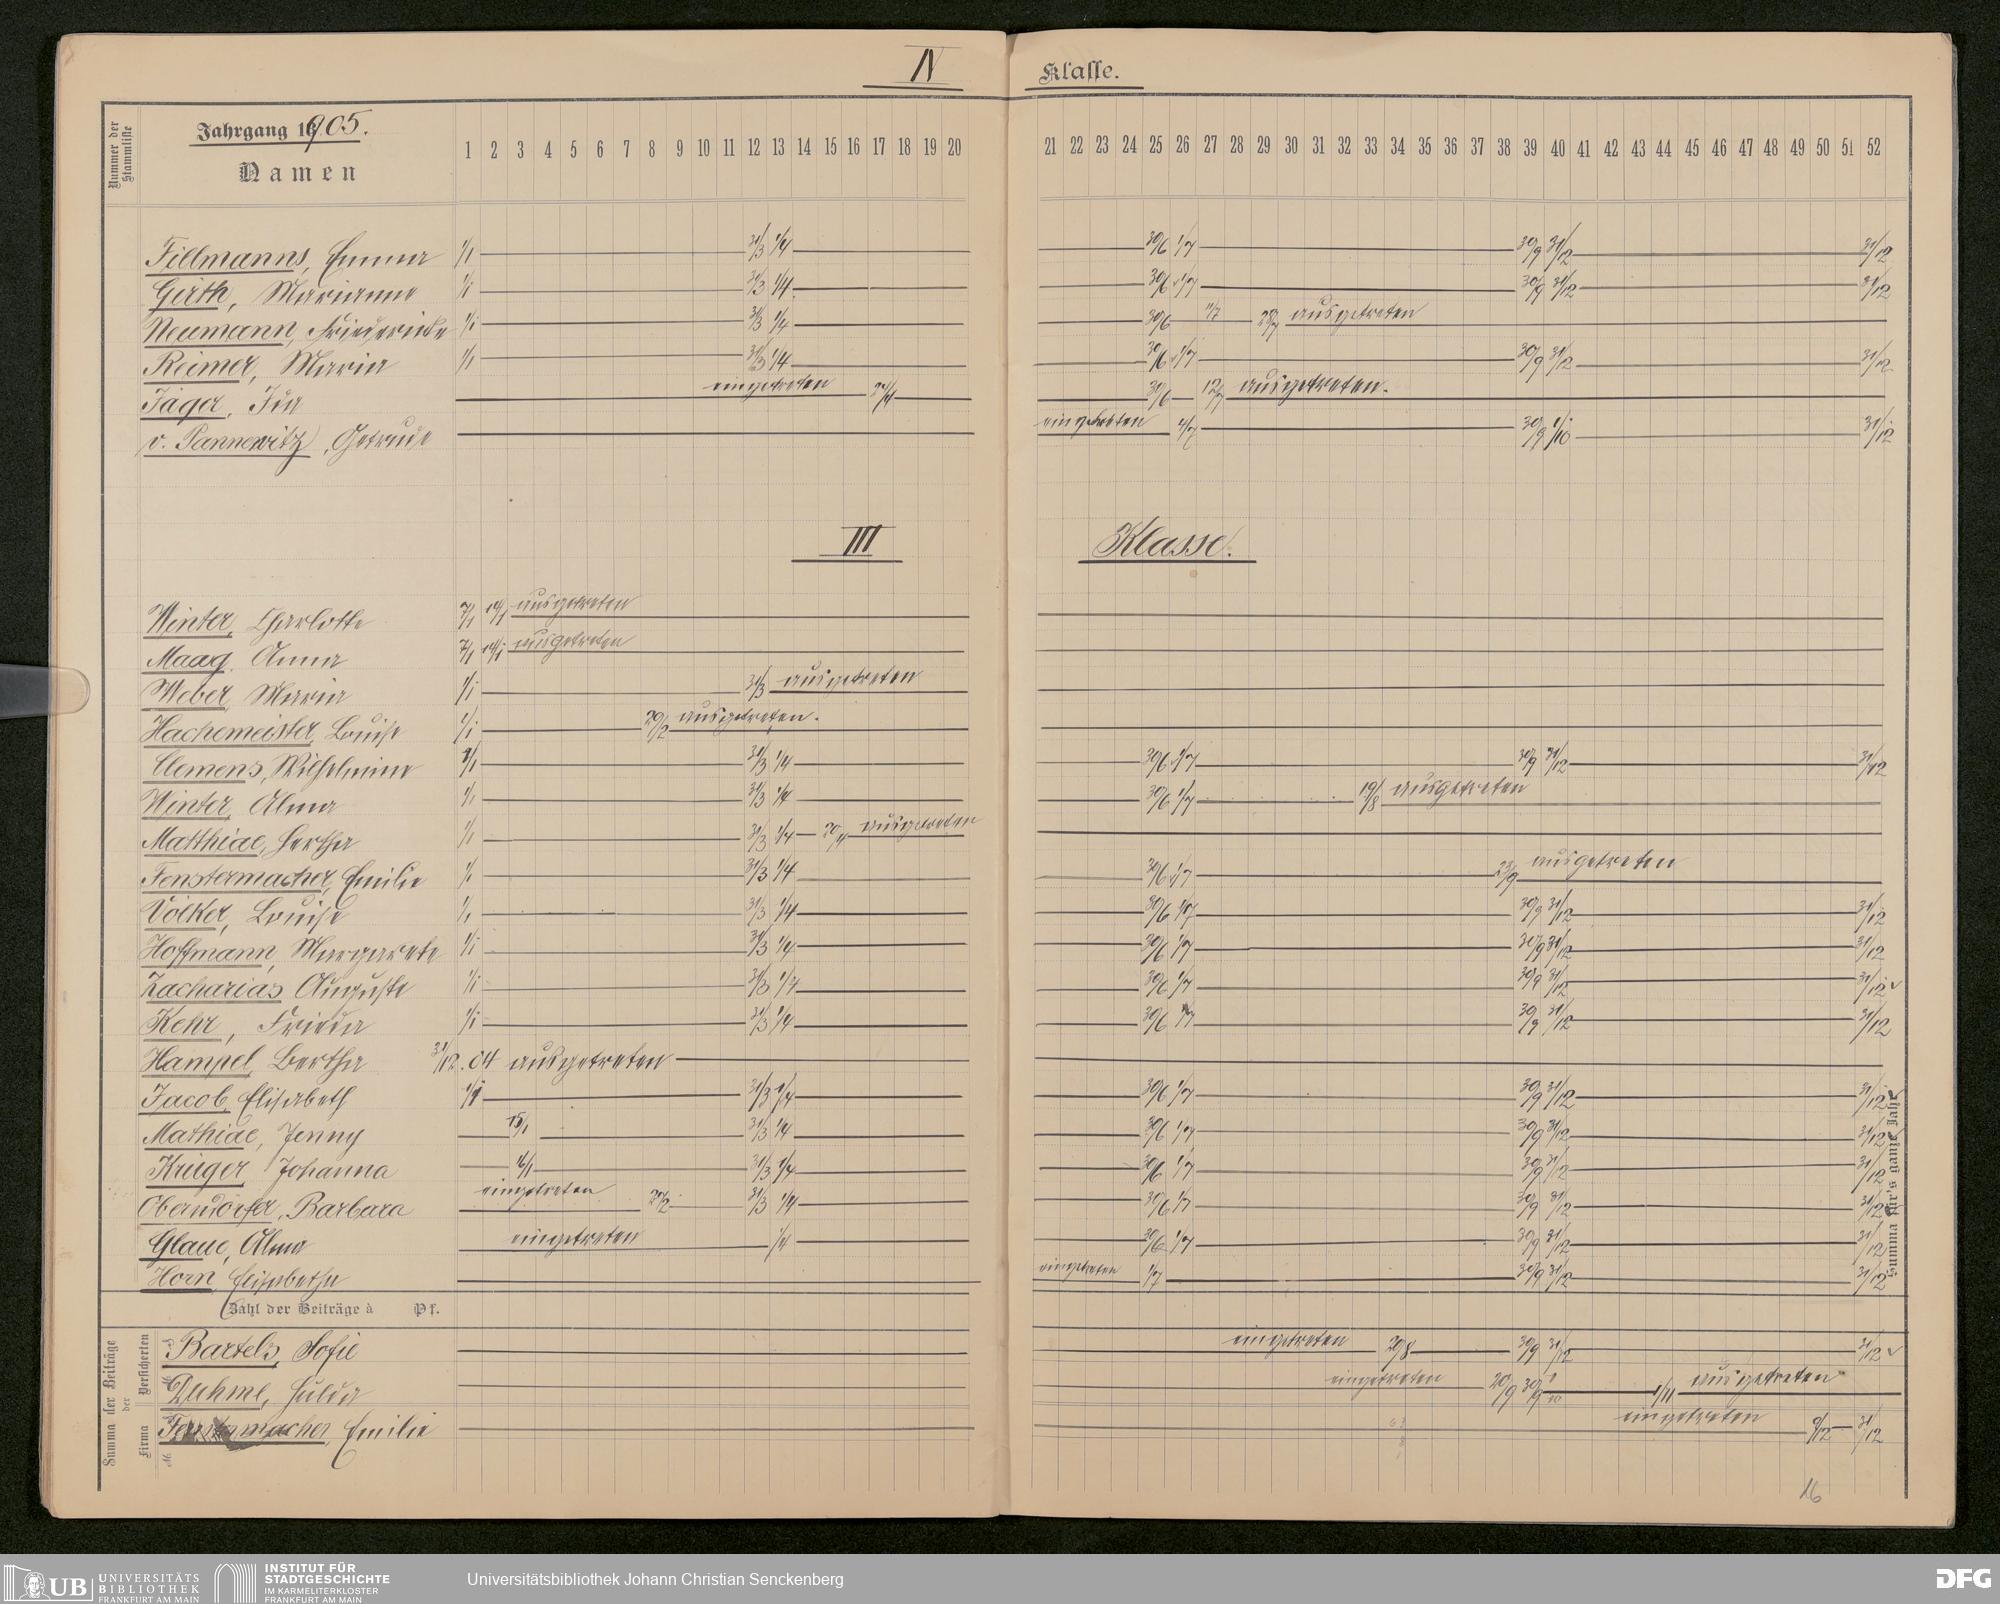 IV Klasse.
Nummer der Stammliste
Jahrgang 1905.
Namen
1 2 3 4 5 6 7 8 9 10 11 12 13 14 15 16 17 18 19 20 21 22 23 24 25 26 27 28 29 30 31 32 33 34 35 36 37 38 39 40 41 42 43 44 45 46 47 48 49 50 51 52
Tillmanns, Emma 1/1 31/3 1/4 30/6 1/7 30/9 31/12 31/12
Girth, Marianne 1/1 31/3 1/4 30/6 1/7 30/9 31/12 31/12
Neumann, Friedericke 1/1 31/3 1/4 30/6 1/7 ausgetreten
Reimer, Maria 1/1 31/3 1/4 30/6 1/7 30/9 31/12 31/12
Jäger, Ida eingetreten 30/6 12/7 ausgetreten.
v. Pannewitz, Getrude eingetreten 4/7 30/9 1/10 31/12
III Klasse.
Winter, Charlotte 7/1 14/1 ausgetreten
Maag, Anna 7/1 14/1 ausgetreten
Weber, Maria 1/1 31/3 ausgetreten
Hachemeister, Louise 1/1 20/2 ausgetreten.
Clemens, Wilhelmine 1/1 31/3 1/4 30/6 1/7 30/9 31/12 31/12
Winter, Alma 1/1 31/3 1/4 30/6 1/7 19/8 ausgetreten
Matthiae, Hertha 1/1 31/3 1/4 20/4 ausgetreten
Fenstermacher, Emilie 1/1 31/3 1/4 30/6 1/7 23/9 ausgetreten
Völker, Louise 1/1 31/3 1/4 30/6 1/7 30/9 31/12 31/12
Hoffmann, Margarete 1/1 31/3 1/4 30/6 1/7 30/9 31/12 31/12
Zacharias Auguste 1/1 31/3 1/4 30/6 1/7 30/9 31/12 31/12
Kehr, Frieda 1/1 31/3 1/4 30/6 1/7 30/9 31/12 31/12
Hampel, Bertha 31/12. 04 ausgetreten
Jacob, Elisabeth 1/1 31/3 1/4 30/6 1/7 30/9 31/12 31/12
Mathiae, Jenny 15/1 31/3 1/4 30/6 1/7 30/9 31/12 31/12
Krüger Johanna 16/1 31/3 1/4 30/6 1/7 30/9 31/12 31/12
Oberndörfer, Barbara eingetreten 31/3 1/4 30/6 1/7 30/9 31/12 31/12
Glaue, Alma eingetreten 1/4 30/6 1/7 30/9 31/12 31/12
Horn, Elisabetha eingetreten 1/7 30/9 31/12 31/12
Summa für's ganze Jahr
Zahl der Beiträge à Pf.
Summa der Beiträge der
Versicherten
Firma
Bartels, Sofie eingetreten 20/8 30/9 31/12 31/12
Duhme, Hulda eingetreten 20/9 30/9 1/10 1/11 ausgetreten
Fenstermacher, Emilie eingetreten 31/12
16
UB UNIVERSITÄTS
BIBLIOTHEK
FRANKFURT AM MAIN
INSTITUT FÜR
STADTGESCHICHTE
IM KARMELITERKLOSTER
FRANKFURT AM MAIN
Universitätsbibliothek Johann Christian Senckenberg
DFG